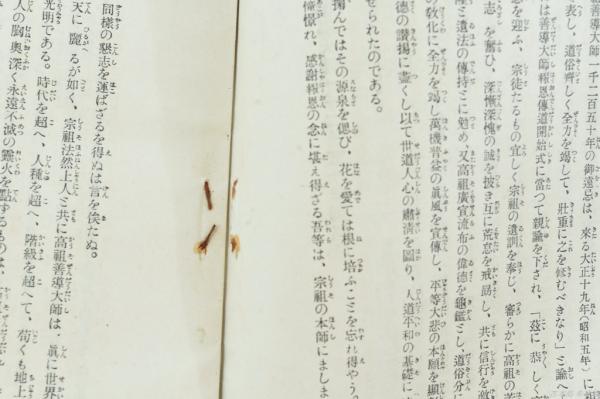 千二百五十年の御遠忌は、來る大正十九年(昭和五年)に
表し、道俗齊しく全力を竭して、壯重に之を修むべきなり」と諭へ
は善導大師報恩傳道開始式に當つて親諭を下され、「茲に恭しく
忌を迎ふ、宗徒たるもの宜しく宗祖の遺訓を奉じ、審らかに高祖の
志を奮ひ、深慚深愧の誠を披き互に荒怠を戒勗し、共に信行を
と遺法の傳持とに勉め、又高祖廣宣流布の偉德を龜鑑とし、道俗
の敎化に全力を竭し萬機普益の眞風を宣傳し、平等大悲の本願を
德の讃揚に盡くし以て世道人心の肅淸を圖り、人道平和の基礎に
せられたのである。
掬んではその源泉を偲び、花を愛ては根に培ふことを忘れ得やう。
憧憬れ、感謝報恩の念に堪え得ざる吾等は、宗祖の本師にましま
同樣の懇志を運ばざるを得ぬは言を俟たぬ。
天に麗るが如く、宗祖法然上人と共に高祖善導大師は、眞に世界
光明である。時代を超へ、人種を超へ、階級を超へて、苟くも地上
人の胸奧深く永遠不滅の靈火を點するものは、